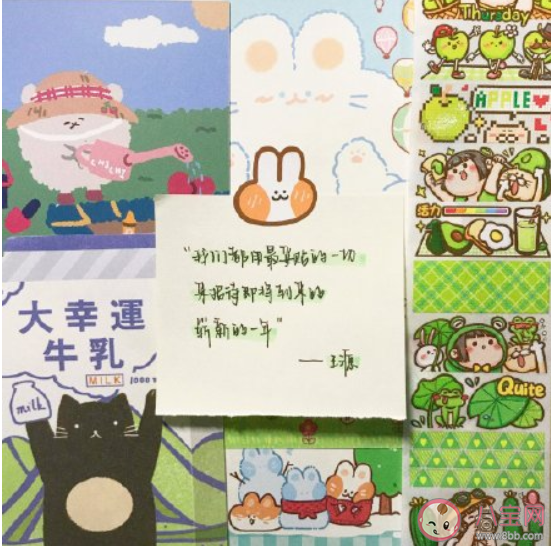 Thursday
APPLE
活力
"我们都用最美好的一切
来招待即将到来的
崭新的一年"
——王源
大幸運
牛乳
MILK
milk
Quite
八宝网
www.8bb.com